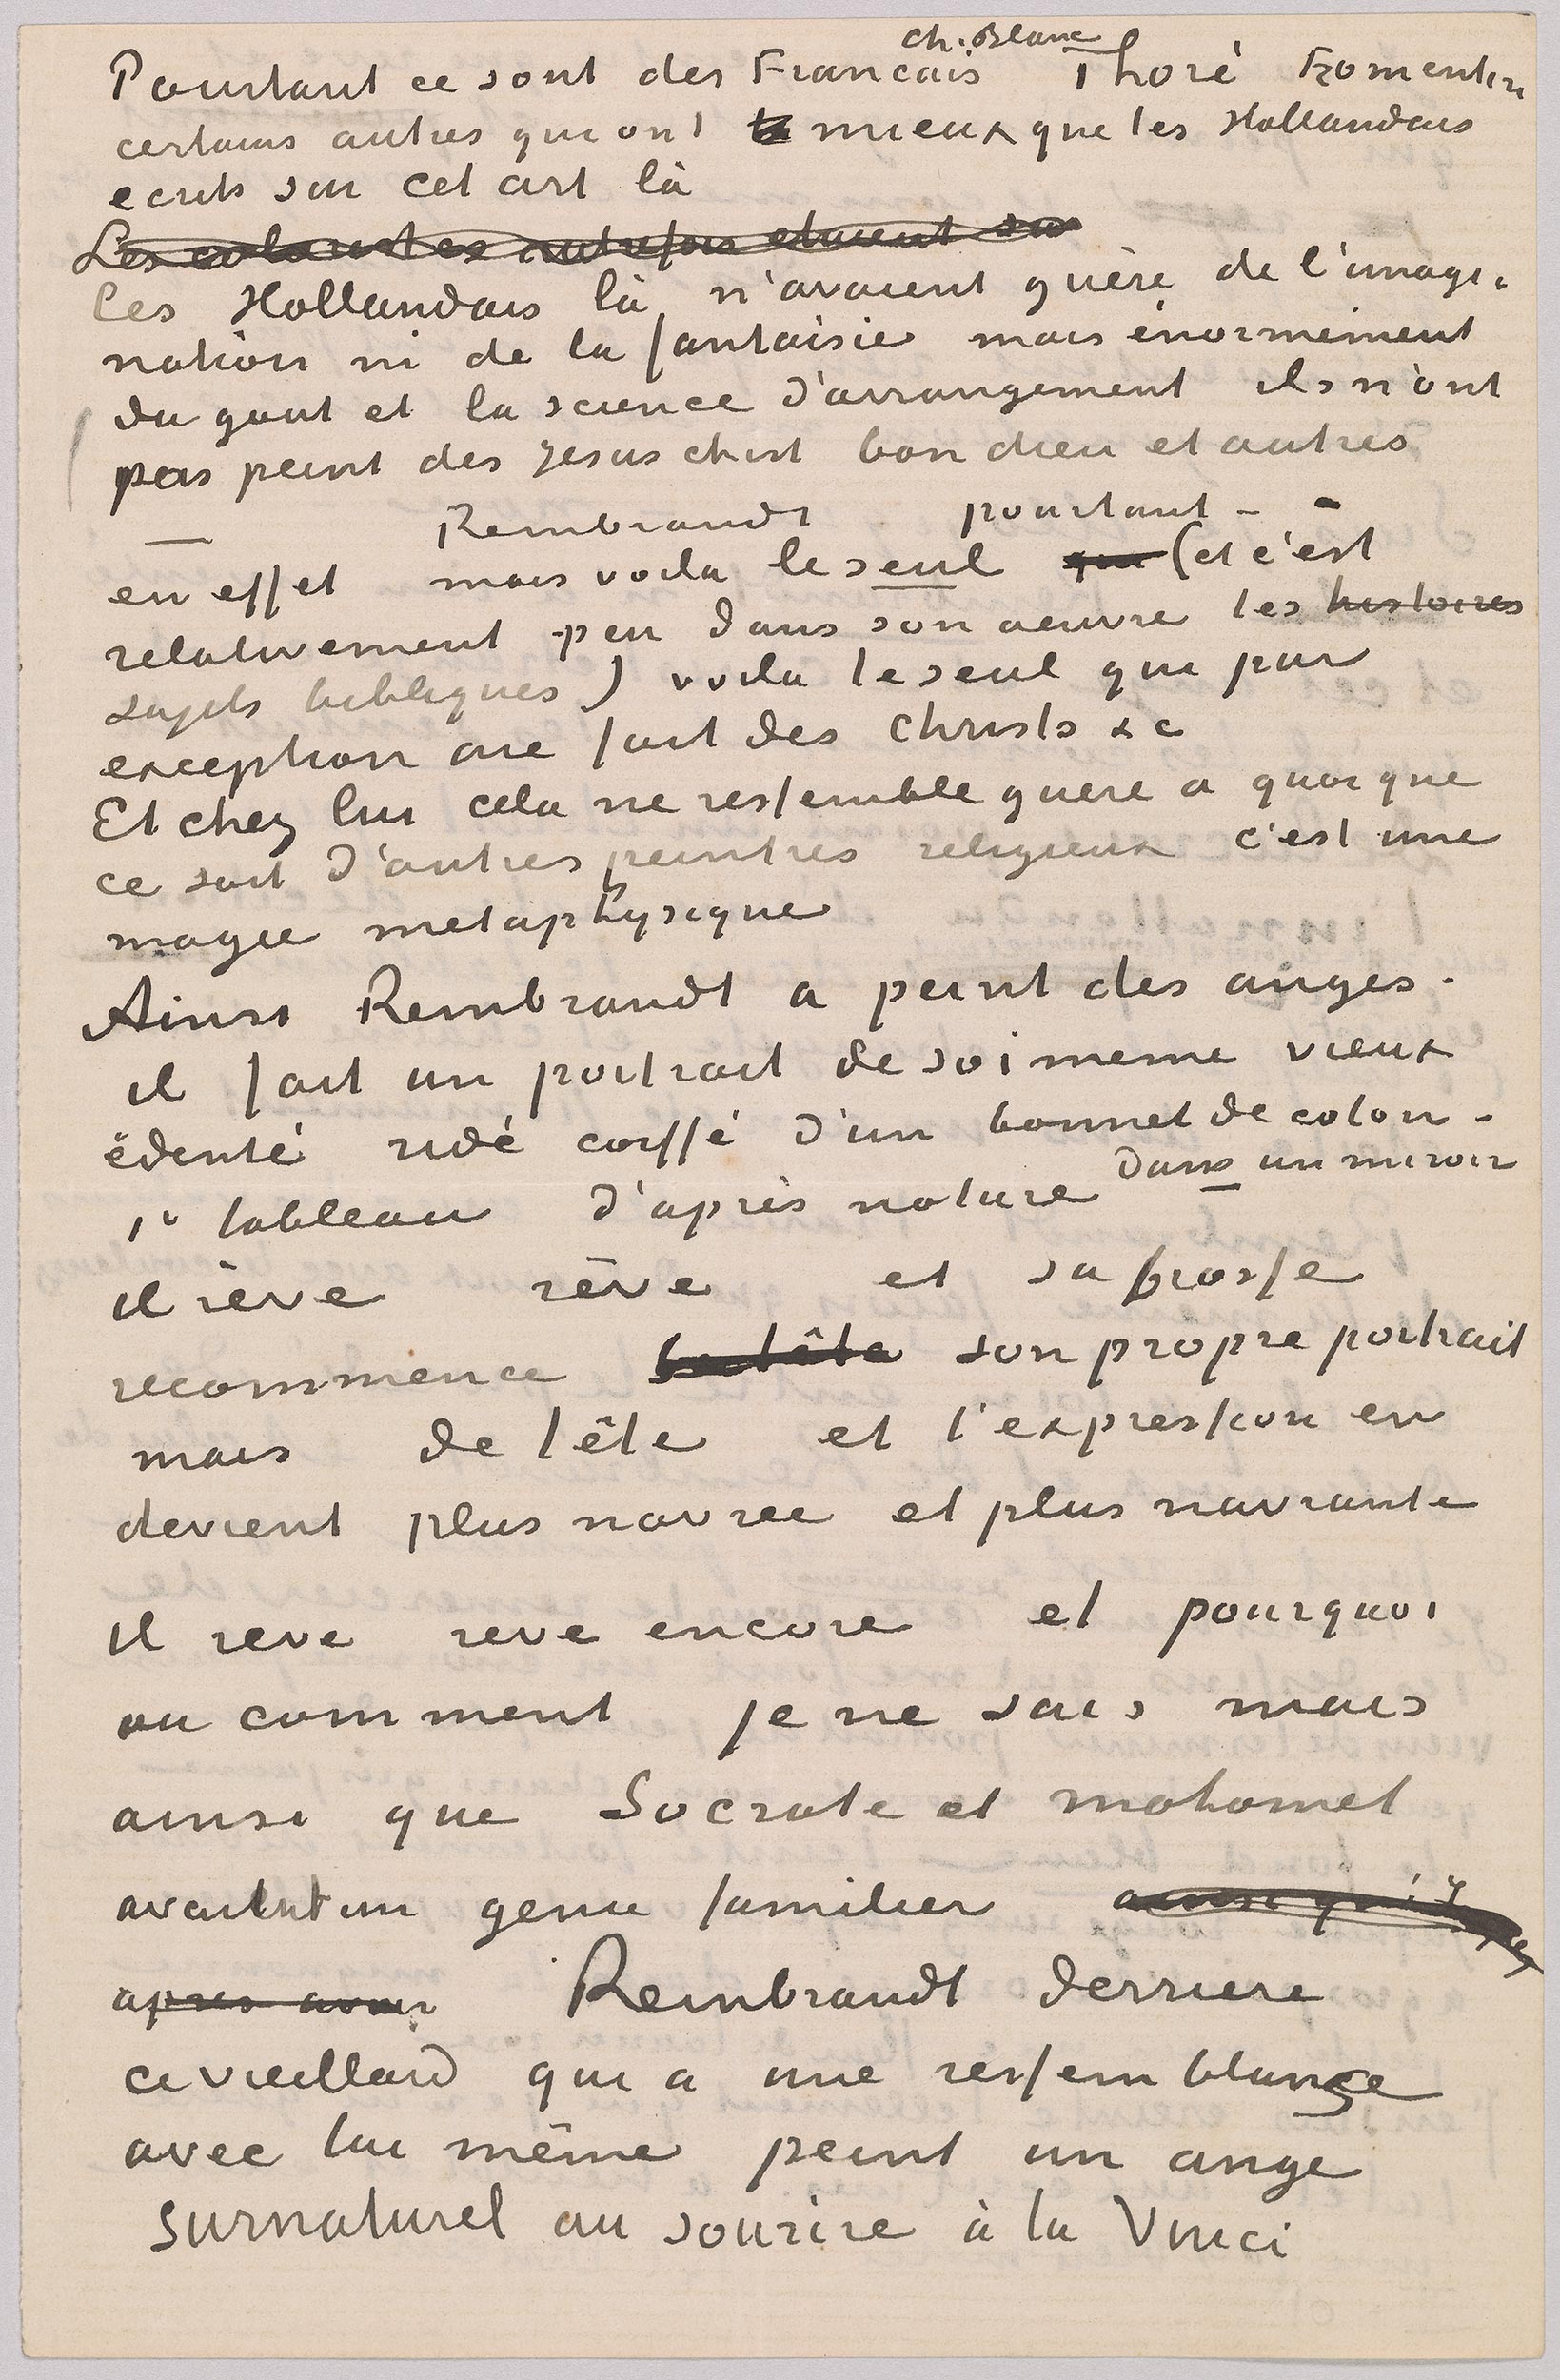 Ch. Blanc
Pourtant ce sont des Francais Thoré Fromentin
certains autres qui ont mieux que les Hollandais
ecrits sur cet art là
Les coloristes autrefois etaient
Ces Hollandais là n'avaient guère de l'imagi-
nation ni de la fantaisie mais énormément
du gout et la science d'arrangement ils n'ont
pas peint des Jesus christ bon dieu et autres
— Rembrandt pourtant —
en effet mais voila le seul qui (et c'est
relativement peu dans son oeuvre les histoires
sujets bibliques) voila le seul qui par
exception aie fait des Christs &c
Et chez lui cela ne ressemble guere a quoi que
ce soit d'autres peintres religieux c'est une
magie metaphysique
Ainsi Rembrandt a peint des anges.
il fait un portrait de soi meme vieux
édenté ridé coiffé d'un bonnet de coton -
1º tableau d'après nature dans un miroir
il rève rève et sa brosse
recommence la tête son propre portrait
mais de tête et l'expression en
devient plus navree et plus navrante
il reve reve encore et pourquoi
ou comment je ne sais mais
ainsi que Socrate et mahomet
avaient un genie familier ainsi qu'il
apres avoir Rembrandt derriere
ce vieillard qui a une ressemblance
avec lui même peint un ange
surnaturel au sourire à la Vinci